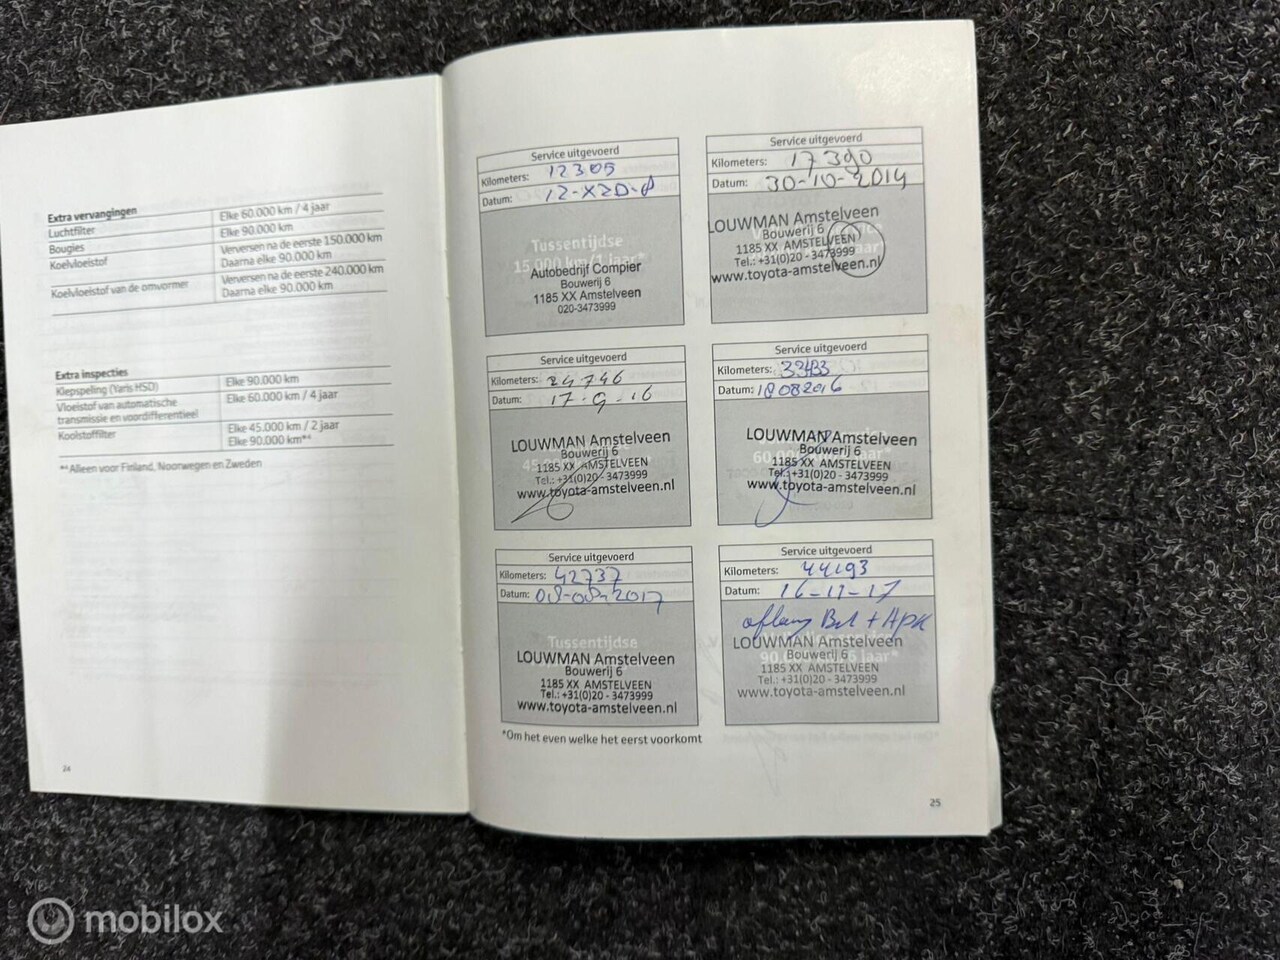 Extra vervangingen
Luchtfilter Elke 60.000 km / 4 jaar
Bougies Elke 90.000 km
Koelvloeistof Verversen na de eerste 150.000 km
Daarna elke 90.000 km
Koelvloeistof van de omvormer Verversen na de eerste 240.000 km
Daarna elke 90.000 km
Extra inspecties
Klepspeling (Yaris HSD) Elke 90.000 km
Vloeistof van automatische Elke 60.000 km / 4 jaar
transmissie en voordifferentieel
Koolstoffilter Elke 45.000 km / 2 jaar
Elke 90.000 km**
** Alleen voor Finland, Noorwegen en Zweden
24
Service uitgevoerd
Kilometers: 12305
Datum:
Tussentijdse
15.000 km/1 jaar*
Autobedrijf Compier
Bouwerij 6
1185 XX Amstelveen
020-3473999
Service uitgevoerd
Kilometers: 17390
Datum: 30-10-2014
LOUWMAN Amstelveen
Bouwerij 6
1185 XX AMSTELVEEN
Tel.: +31(0)20 - 3473999
www.toyota-amstelveen.nl
Service uitgevoerd
Kilometers: 24746
Datum: 17-9-16
LOUWMAN Amstelveen
Bouwerij 6
1185 XX AMSTELVEEN
Tel.: +31(0)20 - 3473999
www.toyota-amstelveen.nl
Service uitgevoerd
Kilometers:
Datum:
LOUWMAN Amstelveen
Bouwerij 6
1185 XX AMSTELVEEN
Tel.: +31(0)20 - 3473999
www.toyota-amstelveen.nl
Service uitgevoerd
Kilometers: 42737
Datum:
Tussentijdse
LOUWMAN Amstelveen
Bouwerij 6
1185 XX AMSTELVEEN
Tel.: +31(0)20 - 3473999
www.toyota-amstelveen.nl
Service uitgevoerd
Kilometers: 44193
Datum: 16-11-17
+ APK
LOUWMAN Amstelveen
Bouwerij 6
1185 XX AMSTELVEEN
Tel.: +31(0)20 - 3473999
www.toyota-amstelveen.nl
*Om het even welke het eerst voorkomt
25
mobilox